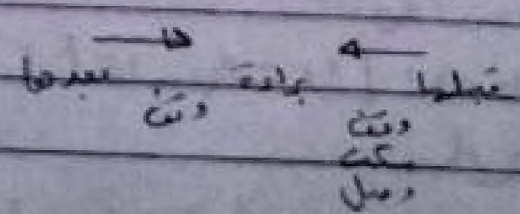 قبلها براءة بعدها
وقف وقف
سكت
وصل